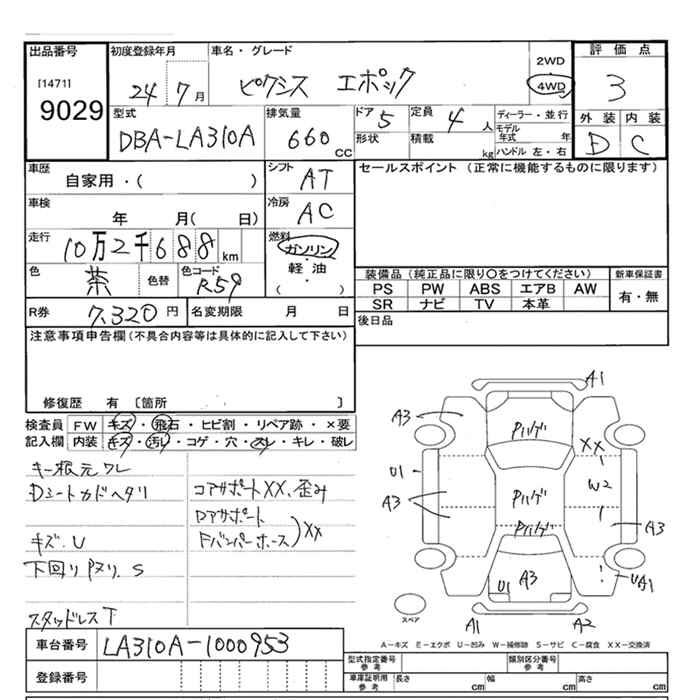 出品番号 初度登録年月 車名・グレード 2WD 評価点
[1471] 24 7月 ピクシス エポック 4WD 3
9029 型式 排気量 ドア 5 定員 4人 ディーラー・並行 外装 内装
DBA-LA310A 660 CC 形状 積載 kg モデル年式 年 D C
ハンドル 左・右
車歴 シフト セールスポイント (正常に機能するものに限ります)
自家用・( ) AT
車検 冷房
年 月( 日) AC
走行 10万2千688 km 燃料 ガソリン
色 茶 色替 色コード R59 軽・油 装備品 (純正品に限り〇をつけてください) 新車保証書
( ・ ) PS PW ABS エアB AW 有・無
R券 7,320円 名変期限 月 日 SR ナビ TV 本革
注意事項申告欄(不具合内容等は具体的に記入して下さい) 後日品
修復歴 有 [箇所 ]
検査員 FW キズ・飛石・ヒビ割・リペア跡・×要
記入欄 内装 キズ・汚レ・コゲ・穴・スレ・キレ・破レ
キー根元ワレ
Dシートカドヘタリ コアサポートXX、歪み
Dアサポート
キズ、U Fバンパーホース XX
下回りPヌリ、S
スタッドレスT
A1
A3 Pハゲ XX
U1 W2
A3 Pハゲ
Pハゲ A3
U1 A3 UA1
スペア A1 A2
A-キズ E-エクボ U-凹み W-補修跡 S-サビ C-腐食 XX-交換済
車台番号 LA310A-1000953
型式指定番号 参考 類別区分番号 参考
登録番号 車庫証明用 参考 長さ cm 幅 cm 高さ cm